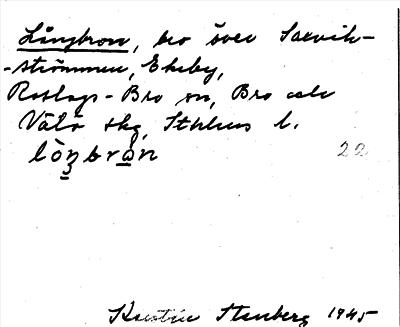 Långbron, bro över Sarvik-
-strömmen, Ekeby,
Roslags-Bro sn, Bro och
Vätö skg, Sthlms l.
lòŋbrån
22
Kerstin Stenberg 1945